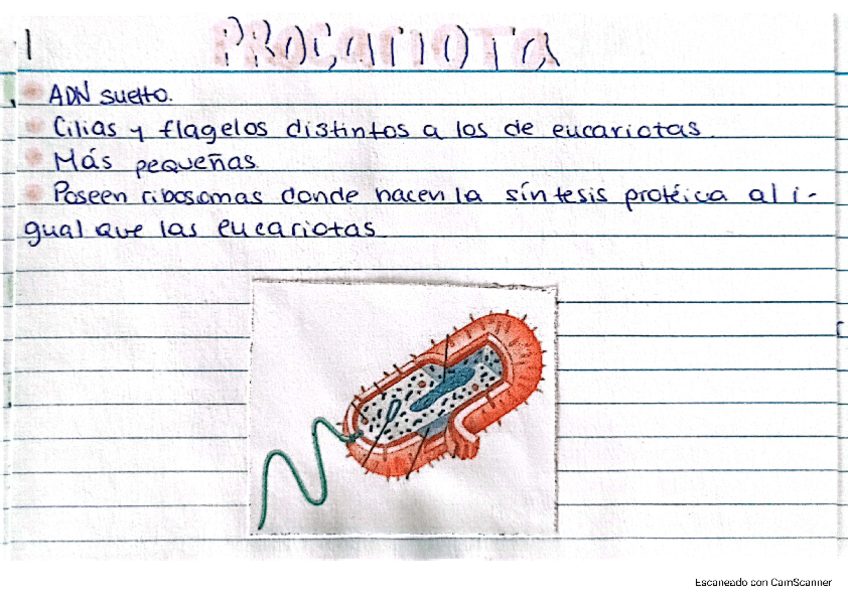 1 PROCARIOTA
ADN suelto.
Cilias y flagelos distintos a los de eucariotas.
Más pequeñas
Poseen ribosomas donde hacen la síntesis protéica al i-
gual que las eucariotas
Escaneado con CamScanner